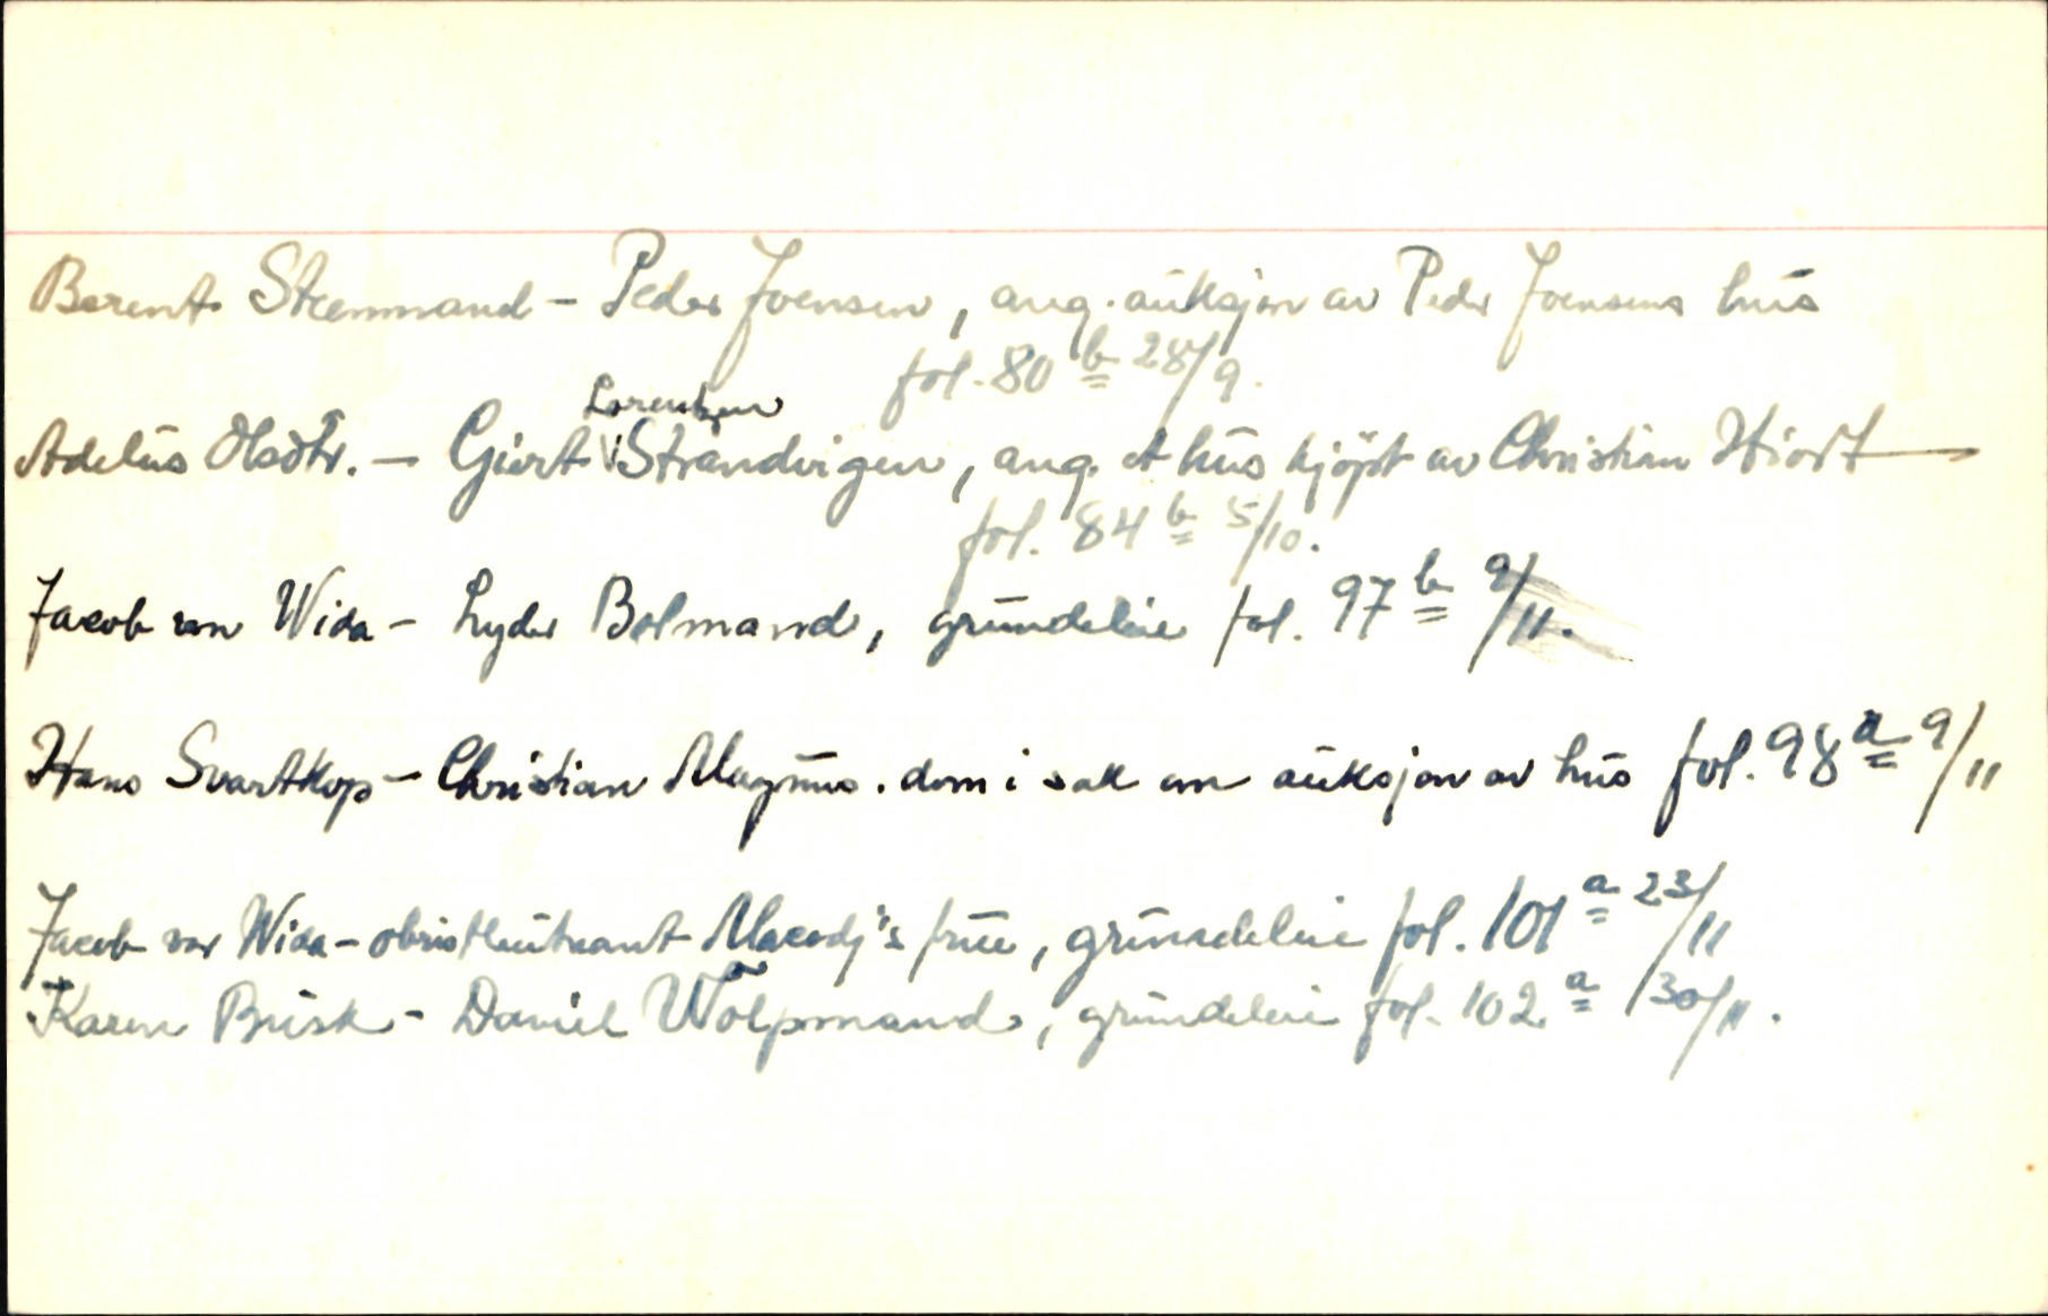 Berent Steenmand - Peder Joensen, ang. auksjon av Peder Joensens hus
fol. 80 b 28/9.
Lorentzen
Adelus Olsdtr. - Giert Strandvigen, ang. et hus kjöpt av Christian Hiort
fol. 84 b 5/10.
Jacob von Wida - Lyder Bolmand, grundeleie fol. 97 b 9/11.
Hans Svartkop - Christian Magnus. dom i sak om auksjon av hus fol. 98 a 9/11
Jacob von Wida - obristleutnant frue, grundeleie fol. 101 a 23/11
Karen Busk - Daniel Wölpmand, grundeleie fol. 102 a 30/11.